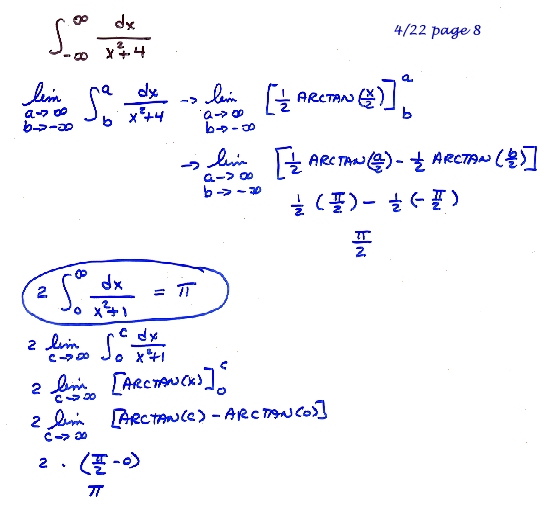 4/22 page 8
∫_{-∞}^{∞} dx/(x²+4)
lim_{a→∞ b→-∞} ∫_b^a dx/(x²+4) → lim_{a→∞ b→-∞} [1/2 ARCTAN(x/2)]_b^a
→ lim_{a→∞ b→-∞} [1/2 ARCTAN(a/2) - 1/2 ARCTAN(b/2)]
1/2 (π/2) - 1/2 (-π/2)
π/2
2 ∫_0^∞ dx/(x²+1) = π
2 lim_{c→∞} ∫_0^c dx/(x²+1)
2 lim_{c→∞} [ARCTAN(x)]_0^c
2 lim_{c→∞} [ARCTAN(c) - ARCTAN(0)]
2 · (π/2 - 0)
π